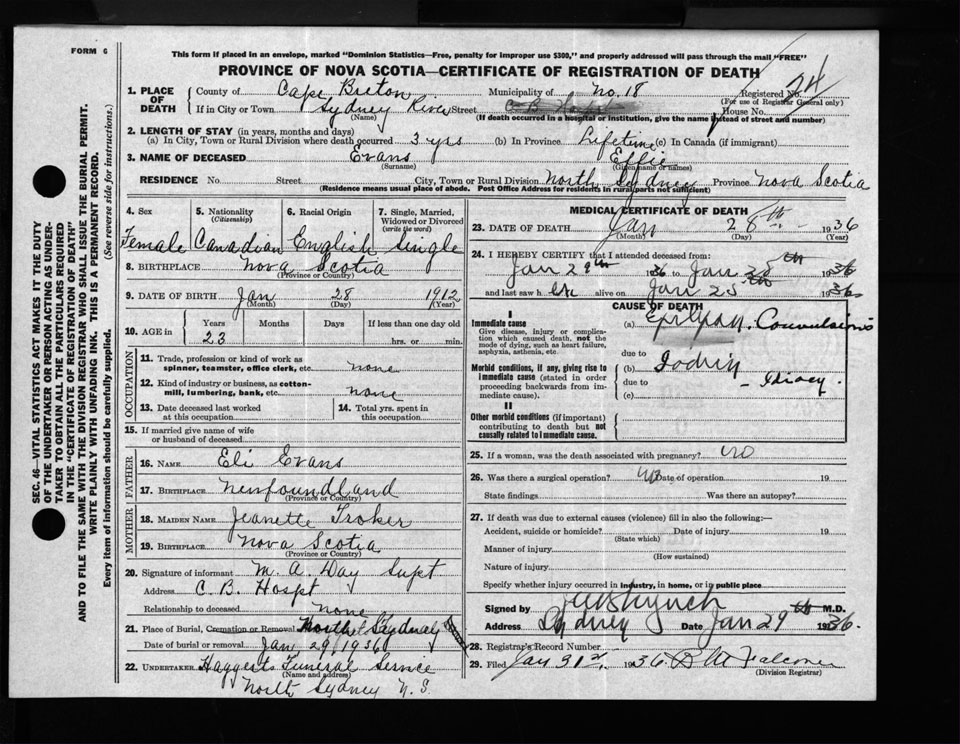 FORM 6
This form if placed in an envelope, marked "Dominion Statistics—Free, penalty for improper use $300," and properly addressed will pass through the mail "FREE"
PROVINCE OF NOVA SCOTIA—CERTIFICATE OF REGISTRATION OF DEATH
1. PLACE OF DEATH County of Cape Breton Municipality of No. 18 Registered No. 24
(For use of Registrar General only)
If in City or Town Sydney River Street C B Hospt House No.
(Name) (If death occurred in a hospital or institution, give the name instead of street and number)
2. LENGTH OF STAY (in years, months and days)
(a) In City, Town or Rural Division where death occurred 3 yrs (b) In Province Lifetime (c) In Canada (if immigrant)
3. NAME OF DECEASED Evans Effie
(Surname) (Given name or names)
RESIDENCE No. Street City, Town or Rural Division North Sydney Province Nova Scotia
(Residence means usual place of abode. Post Office Address for residents in rural parts not sufficient)
4. Sex 5. Nationality 6. Racial Origin 7. Single, Married,
(Citizenship) Widowed or Divorced
(write the word)
Female Canadian English Single
8. BIRTHPLACE Nova Scotia
(Province or Country)
9. DATE OF BIRTH Jan 28 1912
(Month) (Day) (Year)
10. AGE in Years Months Days If less than one day old
23 hrs. or min.
OCCUPATION
11. Trade, profession or kind of work as
spinner, teamster, office clerk, etc. none
12. Kind of industry or business, as cotton-
mill, lumbering, bank, etc. none
13. Date deceased last worked at this occupation 14. Total yrs. spent in this occupation
15. If married give name of wife
or husband of deceased
FATHER
16. NAME Eli Evans
17. BIRTHPLACE Newfoundland
(Province or Country)
MOTHER
18. MAIDEN NAME Jeanette Troker
19. BIRTHPLACE Nova Scotia
(Province or Country)
20. Signature of informant M. A. Day Supt
Address C. B. Hospt
Relationship to deceased none
21. Place of Burial, Cremation or Removal North Sydney
Date of burial or removal Jan 29, 1936
22. UNDERTAKER Haggerts Funeral Service
(Name and address)
North Sydney N. S.
MEDICAL CERTIFICATE OF DEATH
23. DATE OF DEATH Jan 28th 1936
(Month) (Day) (Year)
24. I HEREBY CERTIFY that I attended deceased from:
Jan 29th 36 to Jan 1936
and last saw h er alive on Jan 25 1936
CAUSE OF DEATH
I
Immediate cause
Give disease, injury or complication which caused death, not the mode of dying, such as heart failure, asphyxia, asthenia, etc.
(a) Convulsions
due to
Morbid conditions, if any, giving rise to immediate cause (stated in order proceeding backwards from immediate cause).
(b)
due to - Idiocy.
(c)
II
Other morbid conditions (if important) contributing to death but not causally related to immediate cause.
25. If a woman, was the death associated with pregnancy? No
26. Was there a surgical operation? No Date of operation 19
State findings Was there an autopsy?
27. If death was due to external causes (violence) fill in also the following:—
Accident, suicide or homicide? Date of injury 19
(State which)
Manner of injury
(How sustained)
Nature of injury
Specify whether injury occurred in industry, in home, or in public place
Signed by Lynch M.D.
Address Sydney Date Jan 29th 1936.
28. Registrar's Record Number
29. Filed Jan 31st 1936. Falconer
(Division Registrar)
SEC. 46—VITAL STATISTICS ACT MAKES IT THE DUTY
OF THE UNDERTAKER OR PERSON ACTING AS UNDER-
TAKER TO OBTAIN ALL THE PARTICULARS REQUIRED
IN THE "CERTIFICATE OF REGISTRATION OF DEATH"
AND TO FILE THE SAME WITH THE DIVISION REGISTRAR WHO SHALL ISSUE THE BURIAL PERMIT.
WRITE PLAINLY WITH UNFADING INK. THIS IS A PERMANENT RECORD.
Every item of information should be carefully supplied. (See reverse side for instructions.)